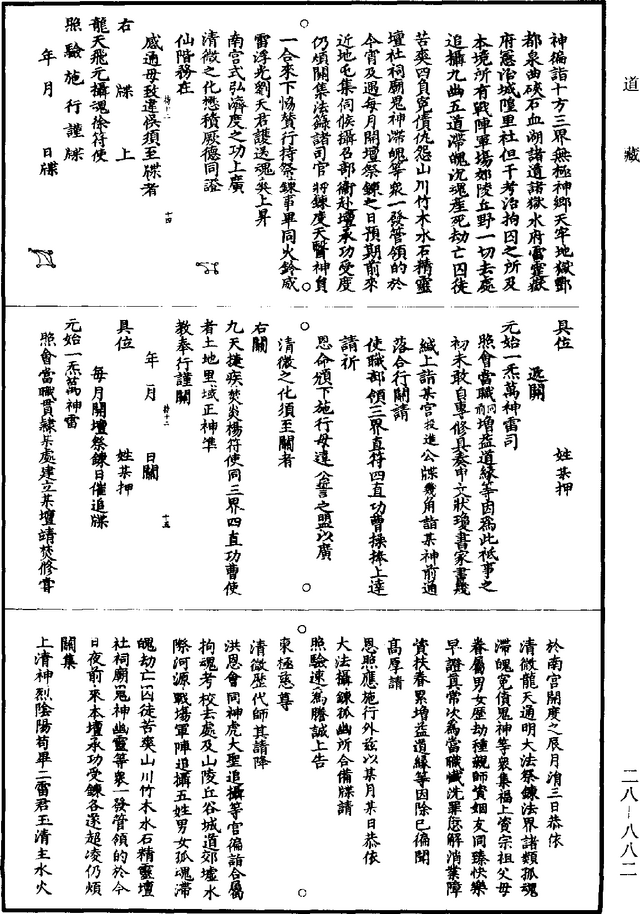 道藏
神徧詣十方三界無極神鄉天牢地獄酆
都泉曲硤石血湖諸道諸獄水府雷霆嶽
府冤治城隍里社但干考治拘囚之所及
本境所有戰陣軍場郊陵丘野一切去處
追攝九幽五道滯魄沉魂產死劫亡囚徒
苦爽四負冤債仇怨山川竹木水石精靈
壇社祠廟鬼神滯魄等衆一發管領的於
今宵及遇每月開壇祭鍊之日預期前來
近地屯集伺候攝召部衛赴壇承功受度
仍煩關集法籙諸司官將鍊度天醫神員
一合來下恊賛行持祭鍊事畢同火鈴威
雷浮光劉天君護送魂爽上昇
南宫式弘濟度之功上廣
清微之化懋積厥德同證
仙階務在
感通毋致違候須至牒者
右牒上
龍天飛元攝魂徐符使
照驗施行謹牒
年月日牒
持十二
十四
具位姓某押
遞關
元始一炁萬神雷司
照會當職同前増益道緣等因爲此秪事之
初未敢自專修具奏申文狀瓊書家書幾
緘上詣某宫投進公牒幾角詣某神前通
落合行關請
使職部領三界直符四直功曹操捧上達
請祈
恩命頒下施行毋違仌誓之盟以廣
清微之化須至關者
右關
九天捷疾焚炎楊符使同三界四直功曹使
者土地里域正神準
教奉行謹關
年月日關
持十二
十五
具位姓某押
每月開壇祭鍊日催追牒
元始一炁萬神雷
照會當職貫隸某處建立某壇靖焚修甞
於南宫開度之辰月消三日恭依
清微龍天通明大法祭鍊法界諸類孤魂
滯魄冤債鬼神等衆集福上資宗祖父母
眷屬男女歴劫種親師資姻友同臻快樂
早證真常次爲當職懺洗罪愆解消業障
資扶眷累増益道緣等因除已徧聞
高厚請
恩照應施行外兹以某月某日恭依
大法攝鍊孤幽所合備牒請
照驗速爲騰誠上告
東極慈尊
清微歴代師真請降
洪恩會同神虎大聖追攝等官徧詣合屬
拘魂考校去處及山陵丘谷城道郊墟水
際河源戰塲軍陣追攝五姓男女孤魂滯
魄劫亡囚徒苦爽山川竹木水石精靈壇
社祠廟鬼神幽靈等衆一發管領的於今
日夜前來本壇承功受鍊各遂超凌仍煩
關集
上清神烈陰陽苟畢二雷君玉清主水火
二八—八八二